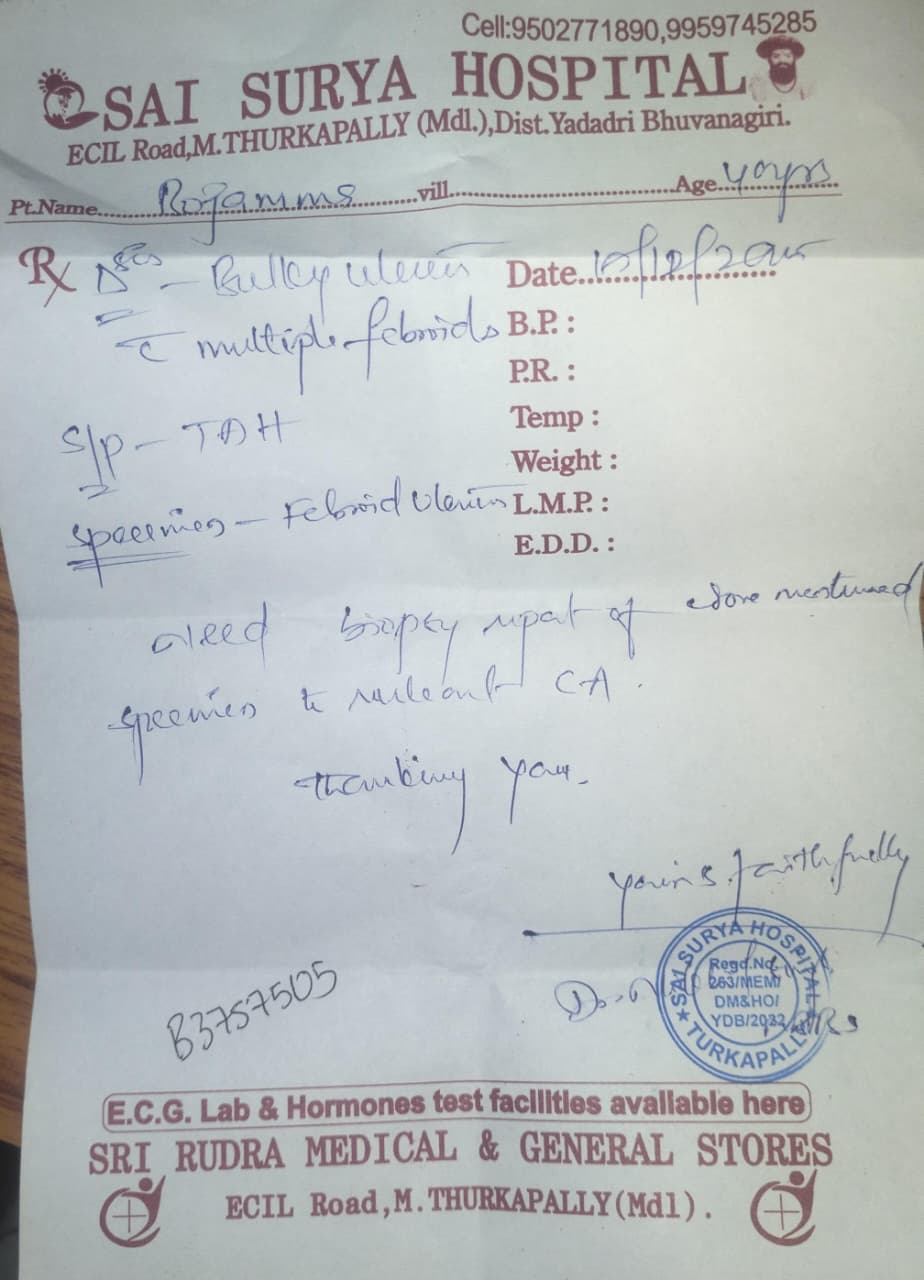 Cell:9502771890,9959745285
SAI SURYA HOSPITAL
ECIL Road,M.THURKAPALLY (Mdl.),Dist.Yadadri Bhuvanagiri.
Pt.Name......Rojamma......vill..............................Age 40yrs
Rx
Bulky uterus
Date..10/12/2025
c multiple febroids
B.P. :
P.R. :
Temp :
S/p - TAH
Weight :
specimen - Febroid Uterus
L.M.P. :
E.D.D. :
need biopsy report of above mentioned
specimen to ruleout CA.
thanking you.
yours faithfully
SAI SURYA HOSPITAL
Regd.No.
263/MEM/
DM&HO/
YDB/2022
TURKAPALLY
B3757505
E.C.G. Lab & Hormones test facilities available here
SRI RUDRA MEDICAL & GENERAL STORES
ECIL Road,M.THURKAPALLY(Mdl).